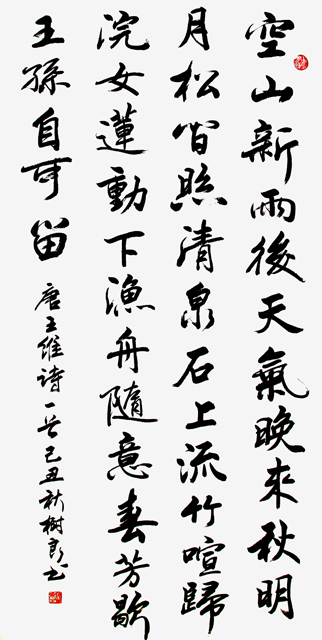 空山新雨後天氣晚來秋明
月松間照清泉石上流竹喧歸
浣女蓮動下漁舟隨意春芳歇
王孫自可留
唐王維詩一首己丑秋樹良书